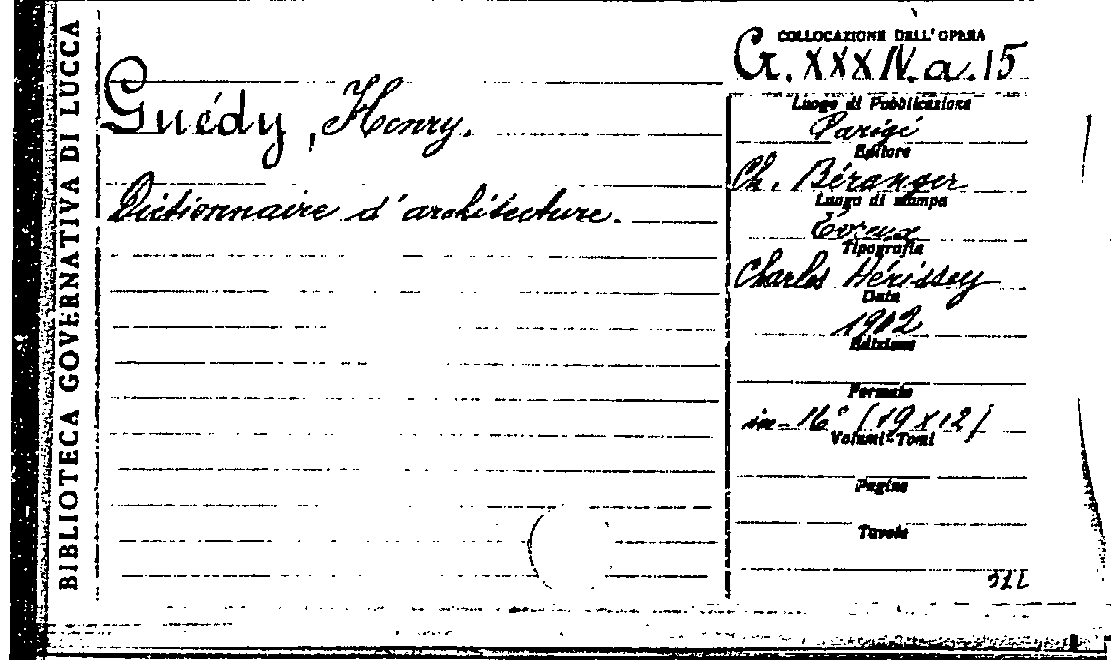 BIBLIOTECA GOVERNATIVA DI LUCCA
Guédy, Henry.
Dictionnaire d'architecture.
COLLOCAZIONE DELL'OPERA
G. XXXIV. a. 15
Luogo di Pubblicazione
Parigi
Editore
Ch. Béranger
Luogo di stampa
Évreux
Tipografia
Charles Hérissey
Data
1902
Edizione
Formato
in-16° (19x12)
Volumi-Tomi
Pagine
Tavole